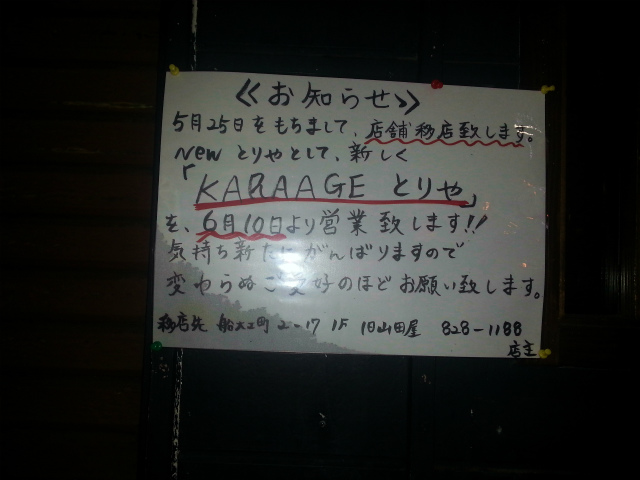 ≪お知らせ≫
5月25日をもちまして、店舗移店致します。
New とりやとして、新しく
「KARAAGE とりや」
を、6月10日より営業致します!!
気持ち新たにがんばりますので
変わらぬご愛好のほどお願い致します。
移店先 船大工町 2-17 1F 旧山田屋 828-1188
店主